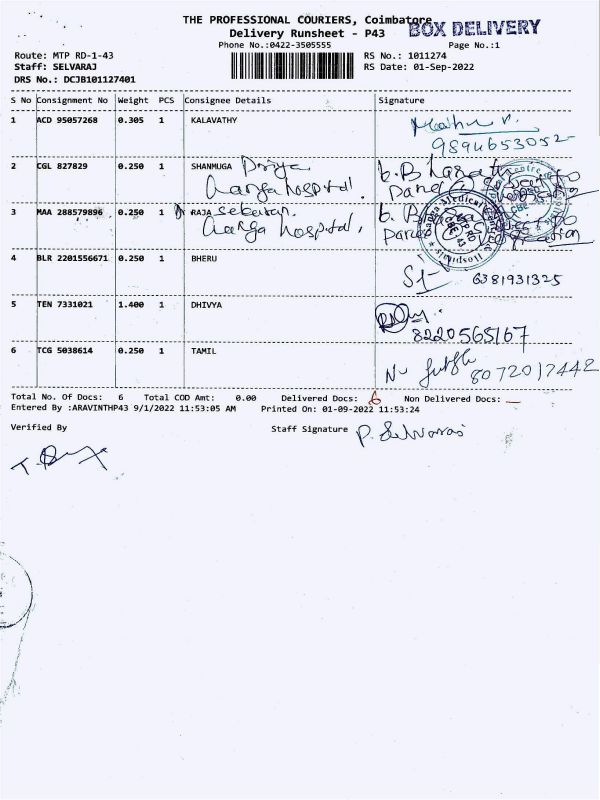 THE PROFESSIONAL COURIERS, Coimbatore
BOX DELIVERY
Delivery Runsheet - P43
Phone No.:0422-3505555
Page No.:1
Route: MTP RD-1-43
RS No.: 1011274
Staff: SELVARAJ
RS Date: 01-Sep-2022
DRS No.: DCJB101127401
S No Consignment No Weight PCS Consignee Details Signature
1 ACD 95057268 0.305 1 KALAVATHY
9894653052
2 CGL 827829 0.250 1 SHANMUGA Priya
Ganga hospital.
3 MAA 288579896 0.250 1 RAJA sekaran.
Ganga hospital,
4 BLR 2201556671 0.250 1 BHERU
6381931325
5 TEN 7331021 1.400 1 DHIVYA
8220565167
6 TCG 5038614 0.250 1 TAMIL
8072017442
Total No. Of Docs: 6 Total COD Amt: 0.00 Delivered Docs: 6 Non Delivered Docs: —
Entered By :ARAVINTHP43 9/1/2022 11:53:05 AM Printed On: 01-09-2022 11:53:24
Verified By Staff Signature P. Selvaraj